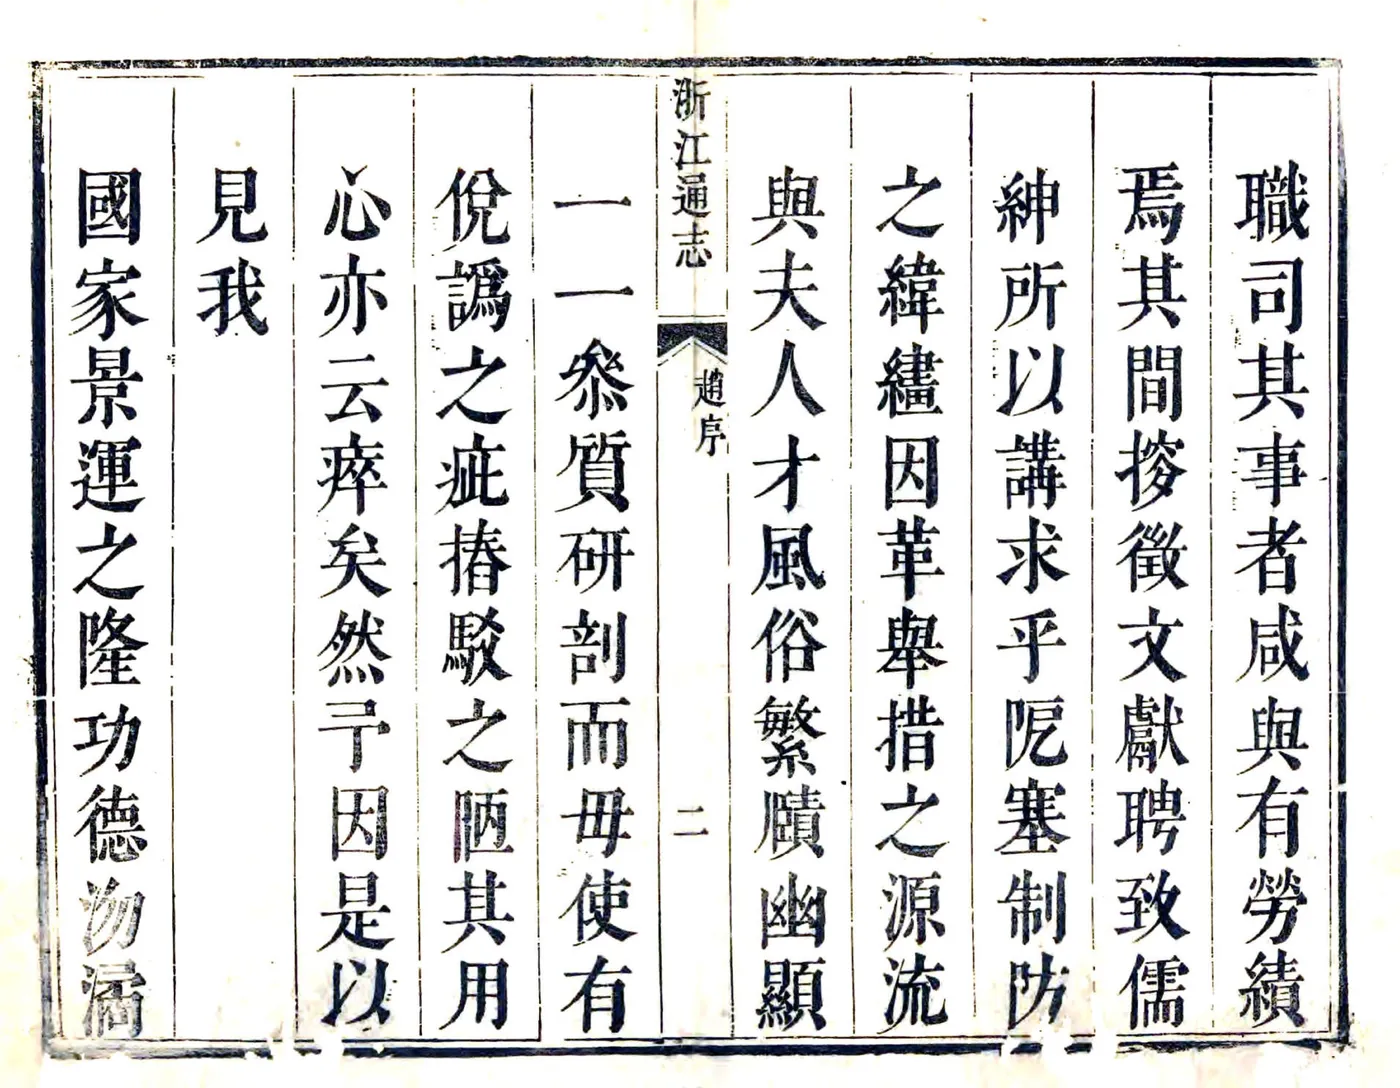 職司其事者咸與有勞績
焉其間摉徵文獻聘致儒
紳所以講求乎阨塞制防
之緯繣因革舉措之源流
與夫人才風俗繁賾幽顯
浙江通志
趙序
二
一一叅質研剖而毋使有
侻譌之疵㨋駁之陋其用
心亦云瘁矣然予因是以
見我
國家景運之隆功德沕潏